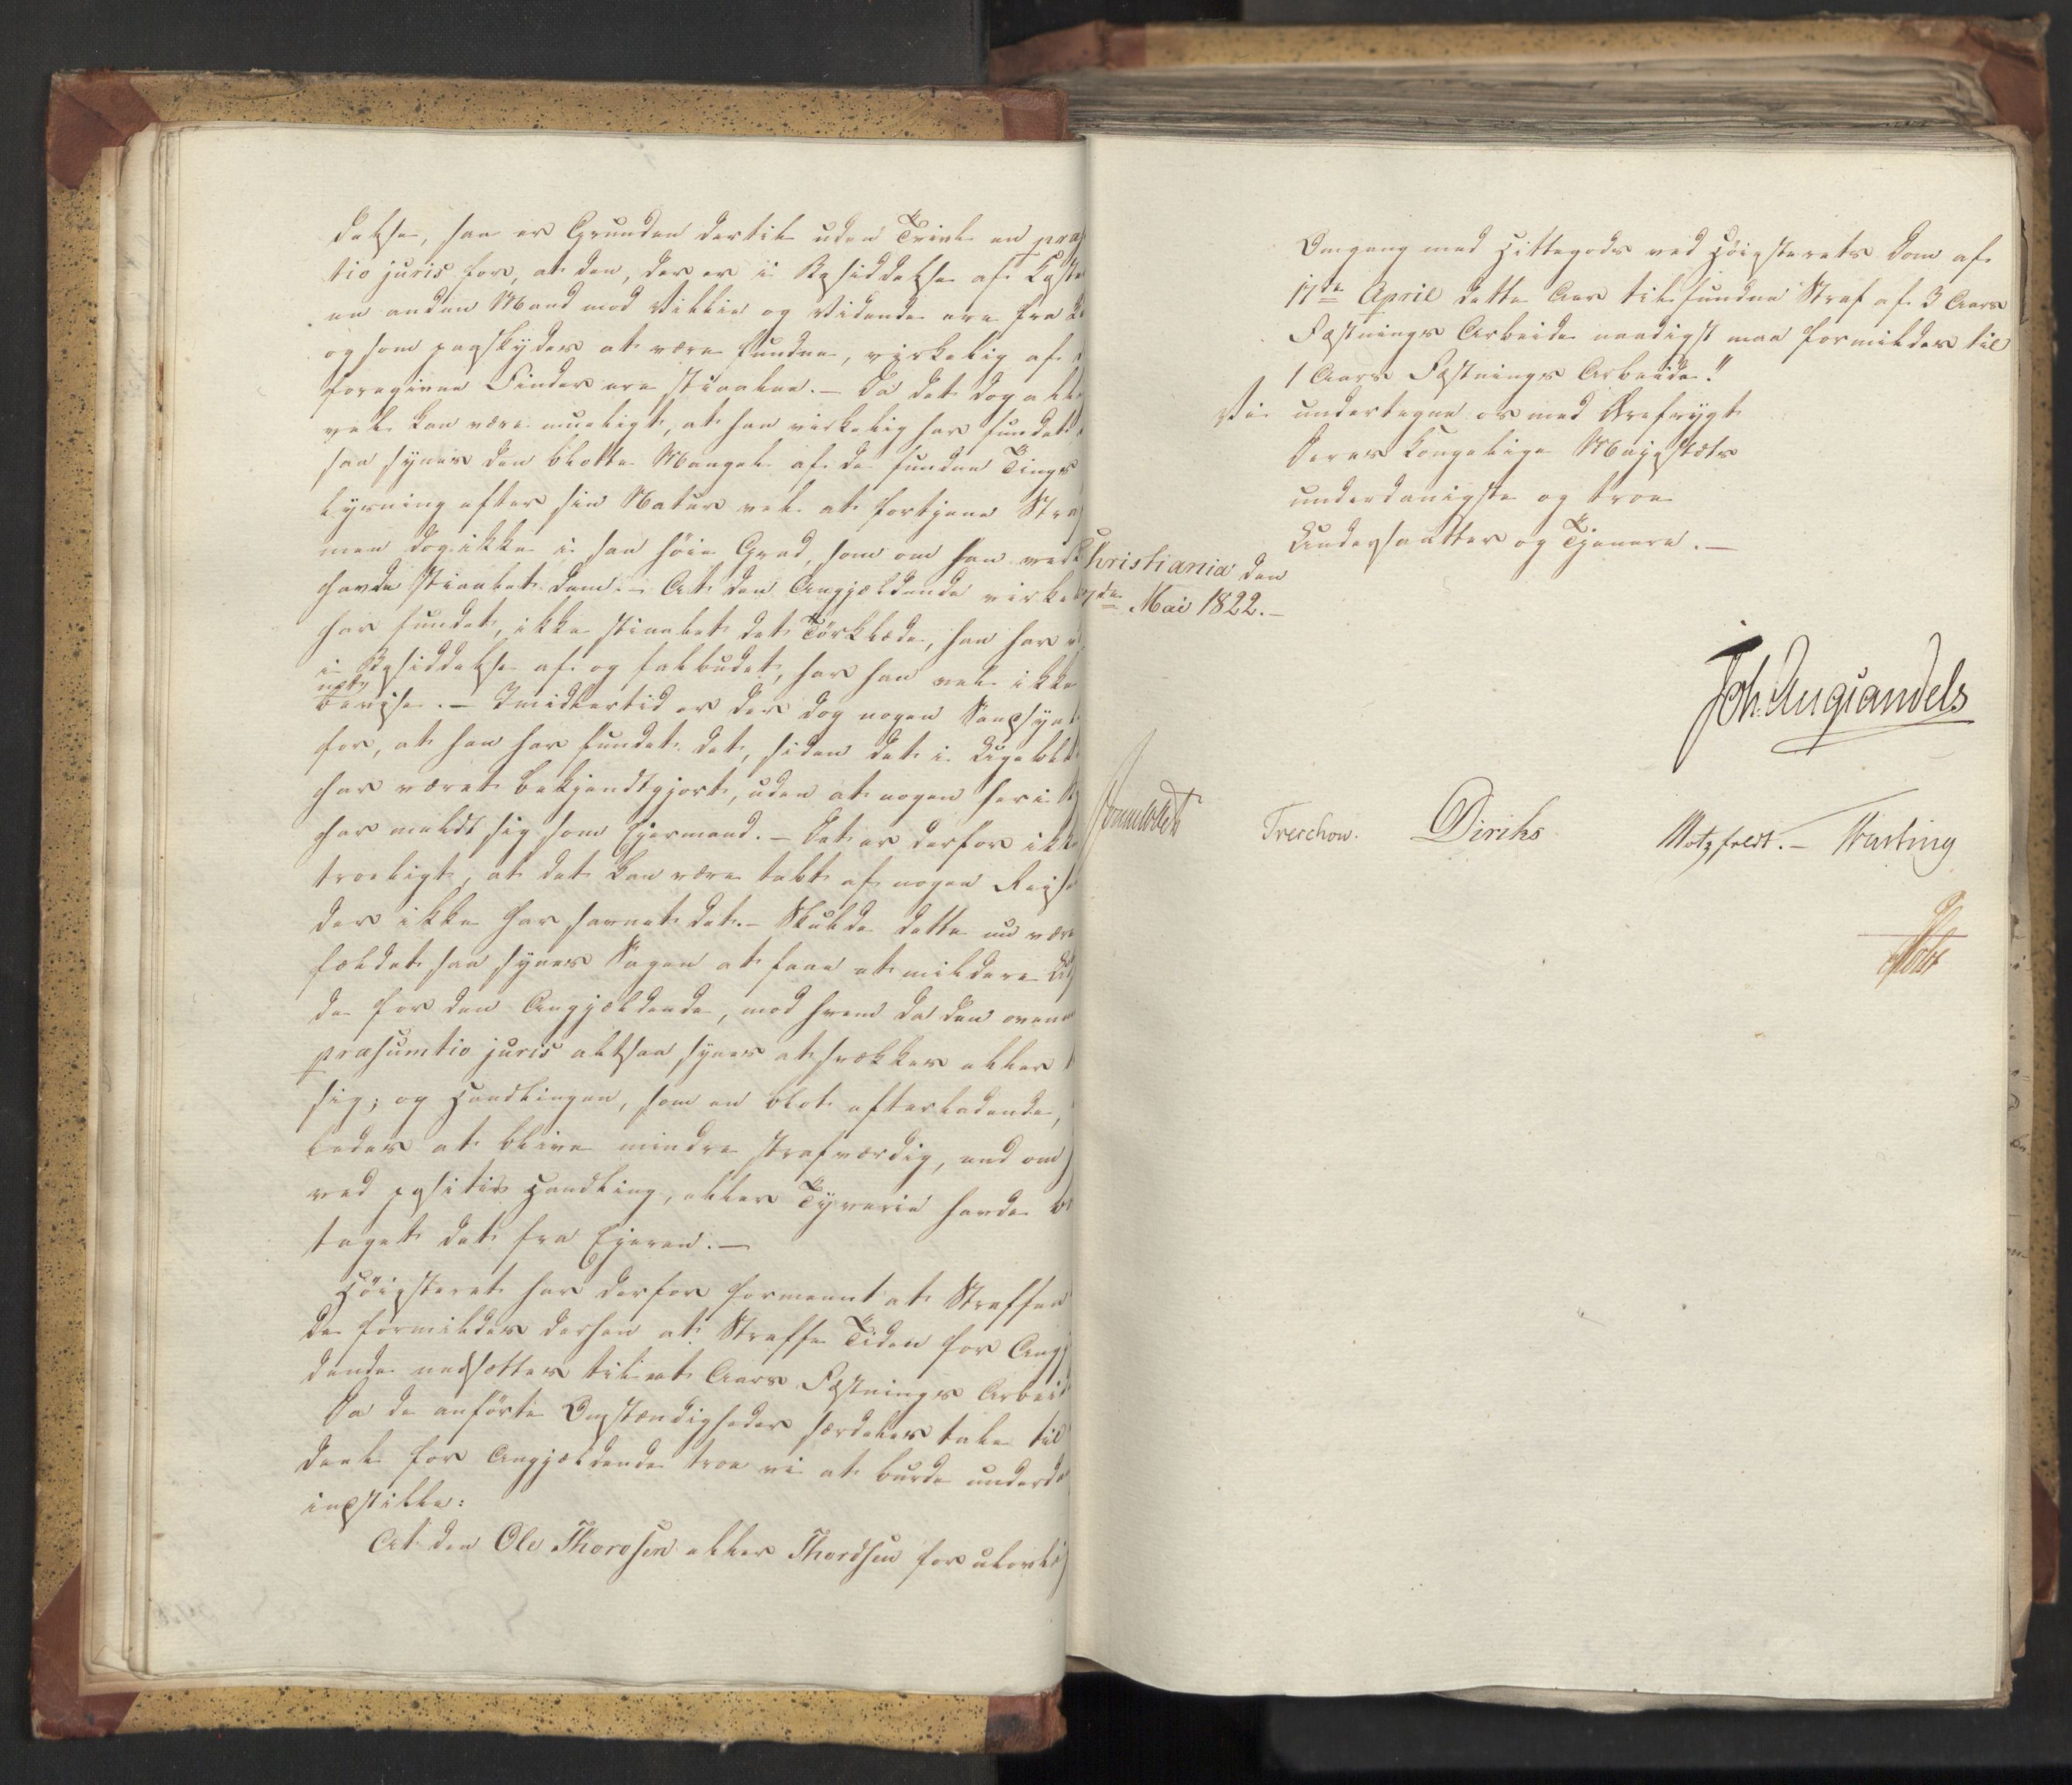 delse, saa er Grunden dertil uden Tvivl en præ
tio juris for, at den, der er i Besiddelse af Koste
en anden Mand mod Villie og Vidende ere fra k
og som paaskydes at være fundne, virkelig af
foregivne Finder ere stiaalne. – Da det dog alli
vel kan være mueligt, at han virkelig har fundet
saa synes den blotte Mangel af de fundne Tings
Lysning efter sin Natur vel at fortjene Straf
men dog ikke i saa høi Grad, som om han virk
havde stiaalet dem. – At den Angjældende virke
har fundet, ikke stiaalet det Tørklæde, han har v
i Besiddelse af og falbudet, har han vel ikke
bevise. – Imidlertid er der dog nogen Sandsynl
for, at han har fundet det, siden det i Ugeblt
har været bekjendtgjort, uden at nogen heri
har meldt sig som Ejermand. – Det er derfor ikke
troeligt, at det kan være tabt af nogen Reise
der ikke har savnet det. – Skulde dette nu være
fældet saa synes Sagen at faae et mildere Ud
de for den Angjældende, mod hvem da den ovenn
præsumtio juris altsaa synes at svækkes eller
sig; og Handlingen, som en blot efterladende,
ledes at blive mindre strafværdig, end om
ved positiv Handling, eller Tyverie havde b
taget det fra Ejeren. –
Høiesteret har derfor formeent at Straffen
de formildes derhen at Straffe Tiden for Angj
dende nedsættes til et Aars Fæstnings Arbeide
Da de anførte Omstændigheder særdeles tale til
deel for Angjældende troe vi at burde underd
indstille:
At den Ole Thorosen eller Thordsen for ulovli
Omgang med Hittegods ved Høiesterets Dom af
17de April dette Aar tilfundne Straf af 3 Aars
Fæstnings Arbeide naadigst maa formildes til
1 Aars Fæstnings Arbeide."
Vi undertegne os med Ærefrygt
Deres Kongelige Majestæts
underdanigste og troe
Undersaatter og Tjenere. –
Christiania den
7de Mai 1822. –
Joh. Aug. Sandels
Sommerhielm Treschow. Diriks Motzfeldt. – Krebting
Holst